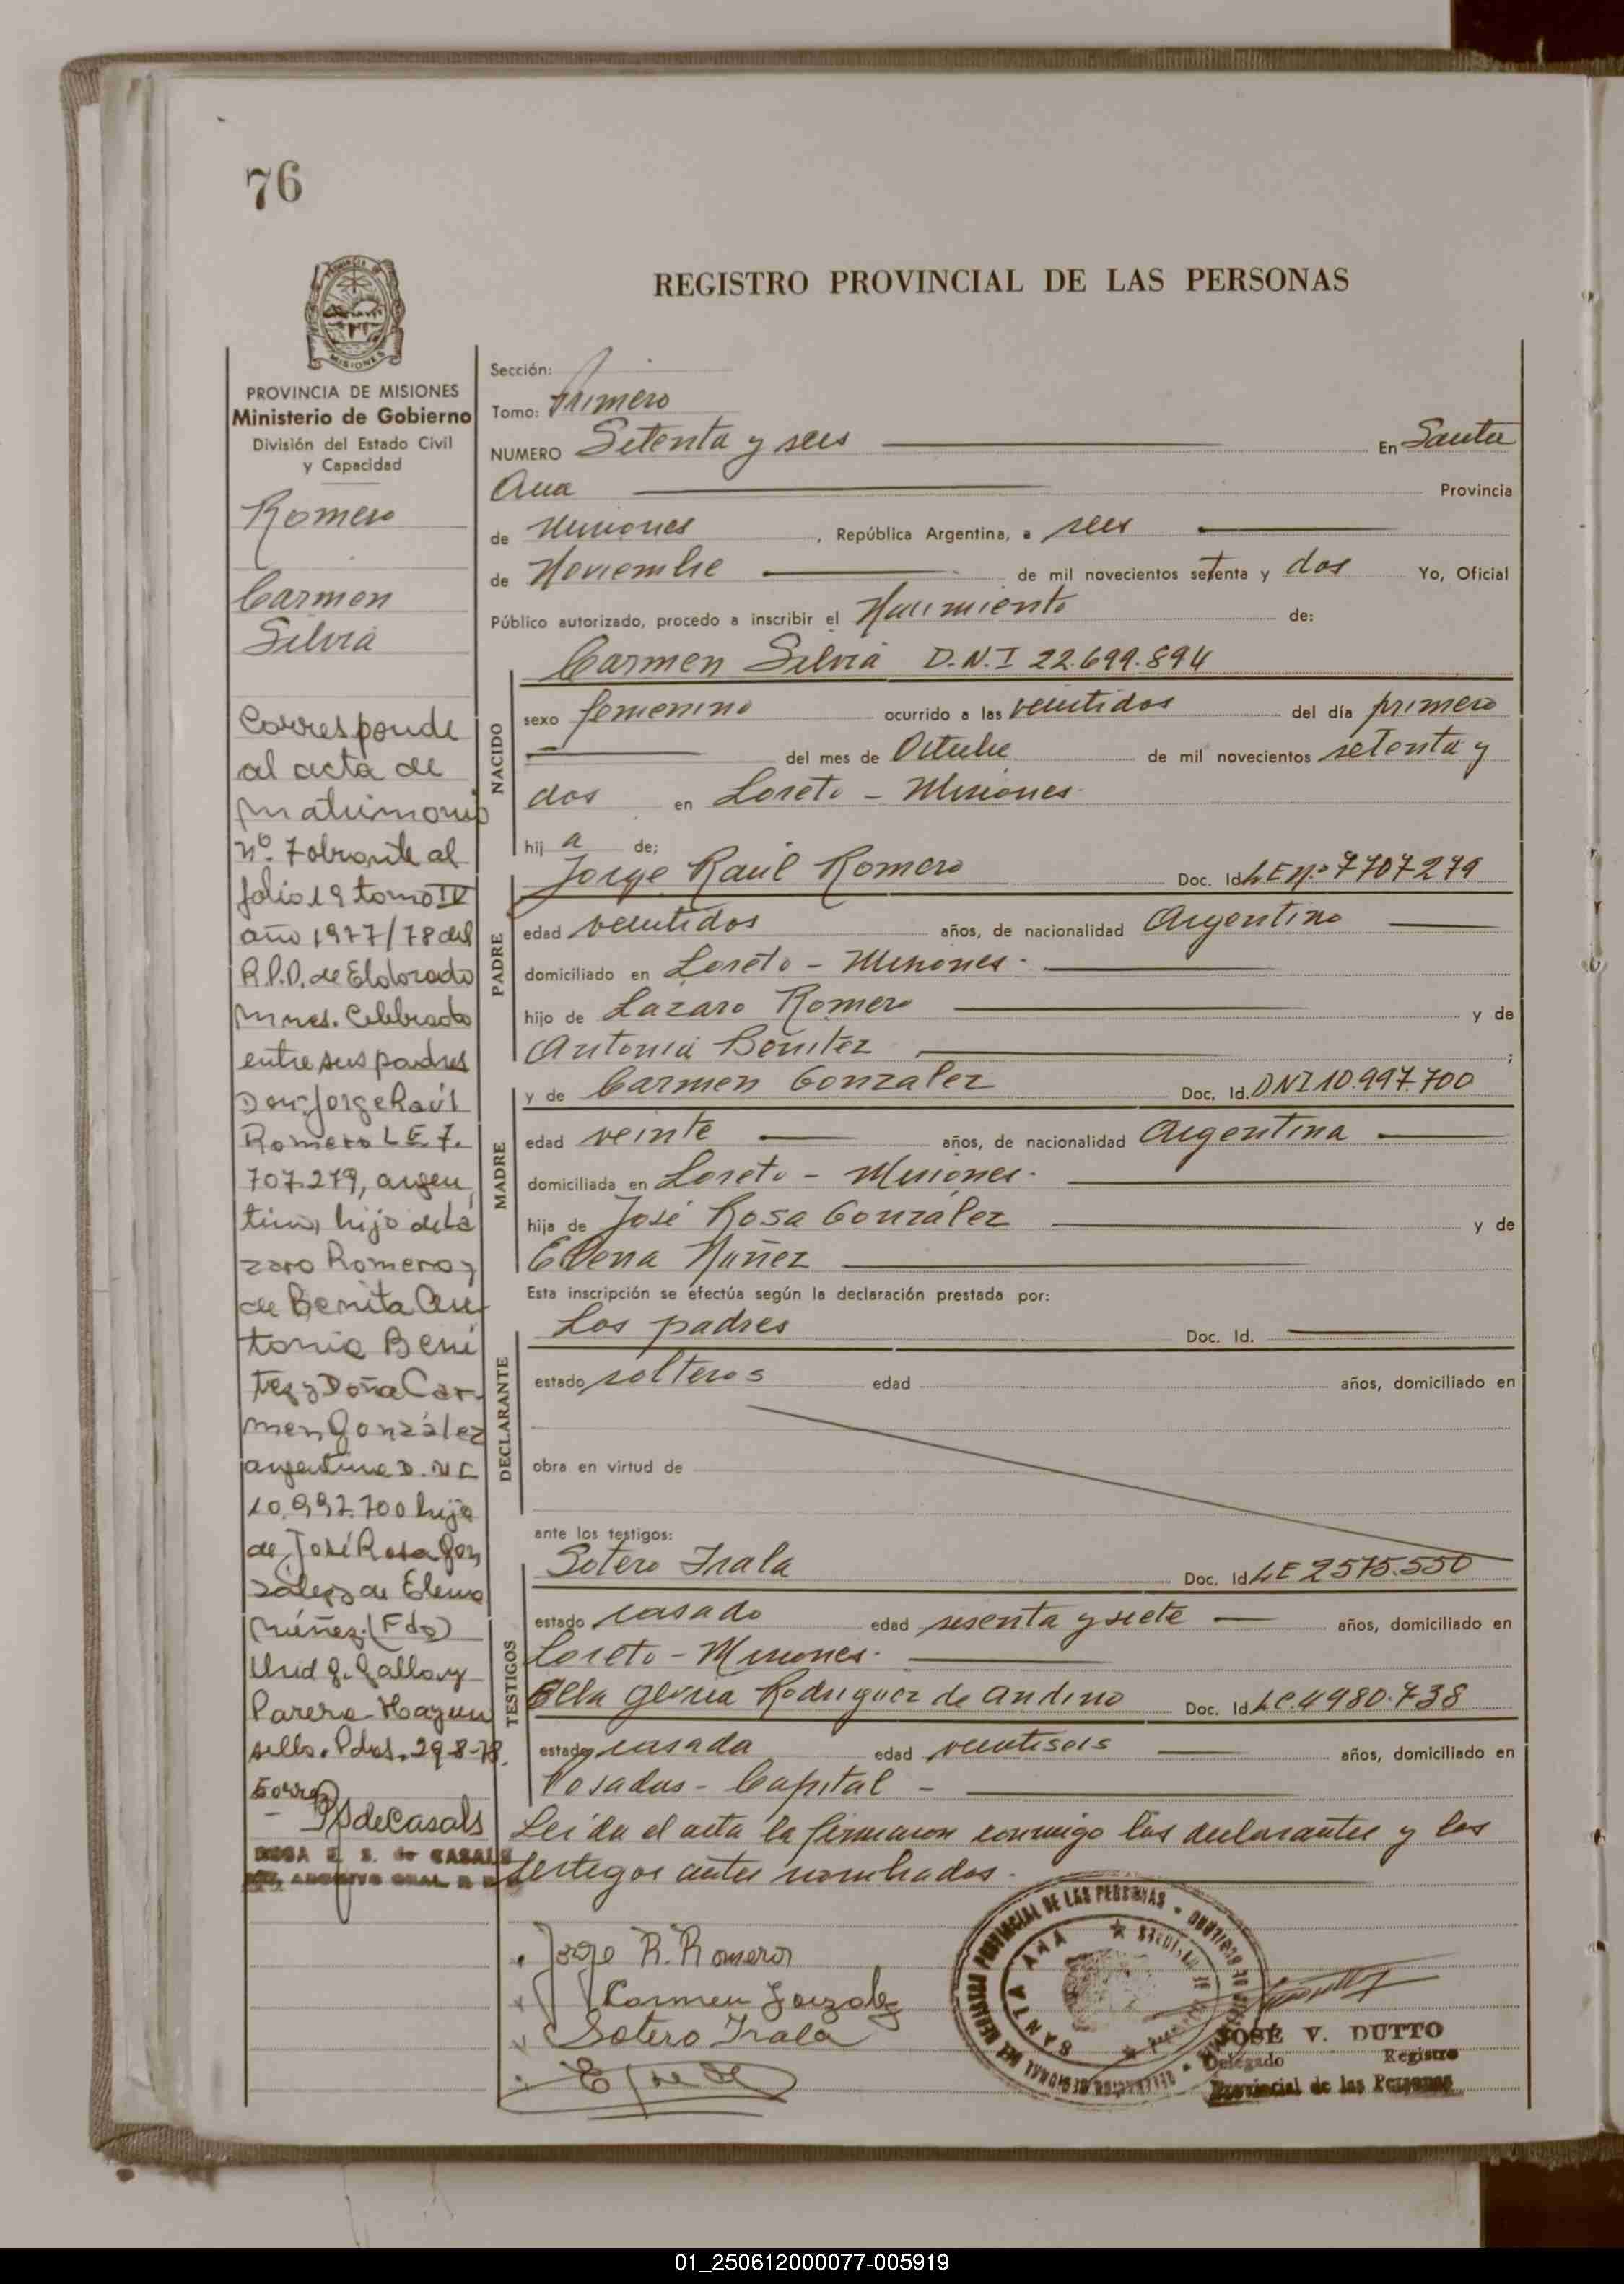 76
REGISTRO PROVINCIAL DE LAS PERSONAS
PROVINCIA DE MISIONES
Ministerio de Gobierno
División del Estado Civil
y Capacidad
Romero
Carmen
Silvia
Corresponde
al acta de
matrimonio
nº. 7 obrante al
folio 19 tomo IV
año 1977/78 del
R.P.P. de Eldorado
Mnes. Celebrado
entre sus padres
Don Jorge Raúl
Romero L.E. 7.
707.279, argen
tino, hijo de Lá
zaro Romero y
de Benita An
tonia Bení
tez y Doña Car-
men González
argentina D.N.I.
10.997.700 hija
de José Rosa Gon
zález y de Elena
Núñez. (Fdo)
sello. Pdas. 29-8-78.
PSdeCasals
ROSA E. S. de CASALS
Sección:
Tomo: Primero
NUMERO Setenta y seis En Santa
Ana Provincia
de Misiones , República Argentina, a seis
de Noviembre de mil novecientos setenta y dos Yo, Oficial
Público autorizado, procedo a inscribir el Nacimiento de:
Carmen Silvia D.N.I 22.699.894
NACIDO
sexo femenino ocurrido a las veintidos del día primero
del mes de Octubre de mil novecientos setenta y
dos en Loreto - Misiones.
hij a de:
Jorge Raúl Romero Doc. Id. LE nº 7707279
PADRE
edad veintidos años, de nacionalidad Argentino
domiciliado en Loreto - Misiones.
hijo de Lazaro Romero y de
Antonia Benitez ;
y de Carmen Gonzalez Doc. Id. DNI 10.997.700
MADRE
edad veinte años, de nacionalidad Argentina
domiciliada en Loreto - Misiones.
hija de José Rosa González y de
Elena Nuñez
Esta inscripción se efectúa según la declaración prestada por:
Los padres Doc. Id.
DECLARANTE
estado solteros edad años, domiciliado en
obra en virtud de
ante los testigos:
Sotero Irala Doc. Id. LE 2575.550
TESTIGOS
estado casado edad sesenta y siete años, domiciliado en
Loreto - Misiones.
Gloria Rodriguez de Andino Doc. Id. LC. 4980.738
estado casada edad veintiseis años, domiciliado en
Posadas - Capital -
Leída el acta la firmaron conmigo los declarantes y los
testigos antes nombrados.
Jorge R. Romero
Carmen Gonzalez
Sotero Irala
SANTA ANA
JOSÉ V. DUTTO
Delegado Registro
Provincial de las Personas
01_250612000077-005919